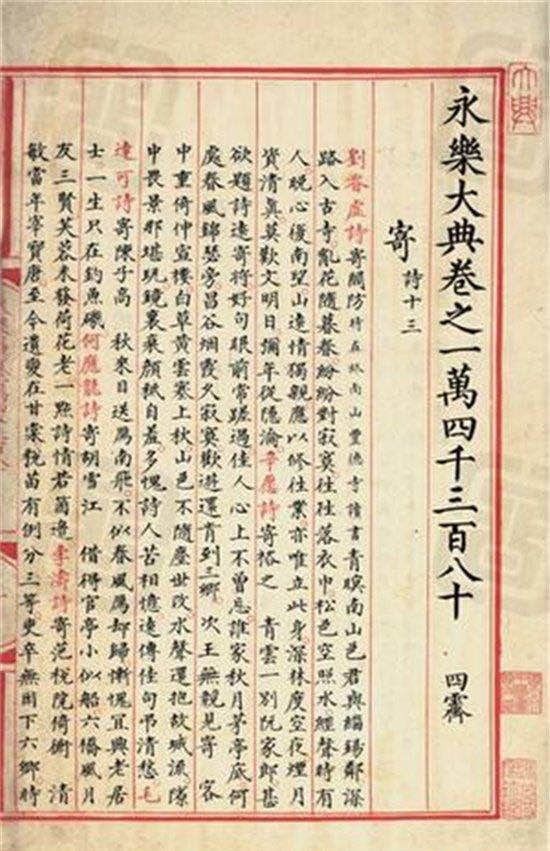 永樂大典卷之一萬四千三百八十 四霽
寄 詩十三
劉眘虛詩寄閻防時在終南山豐德寺讀書 青暝南山邑君與緇錫鄰深
路入古寺亂花隨暮春紛紛對寂寞往往落衣巾松色空照水經聲時有
人晚心復南望山遠情獨親應以修往業亦唯立此身深林度空夜煙月
資清真莫歎文明日彌年從隱淪辛愿詩寄裕之 青雲一別阮家郎甚
欲題詩遠寄將好句眼前常蹉過佳人心上不曾忘誰家秋月茅亭底何
處春風錦瑟旁昌谷烟霞久寂寞歡遊還肯到三鄉 次王無競見寄 客
中重倚仲宣樓白草黃雲塞上秋山色不隨塵世改水聲還抱故城流隙
中畏景那堪玩鏡裏衰顏秖自羞多愧詩人苦相憶遠傳佳句弔清愁毛
達可詩寄陳子高 秋來目送厲南飛不似春風厲却歸慚愧宜興老居
士一生只在釣魚磯何應龍詩寄胡雪江 借得官亭小似船六橋風月
友三賢芙蓉未發荷花老一點詩情若箇邊李濤詩寄范稅院倚術 清
敏當年宰寶唐至今遺愛在甘棠銳苗有例分三等吏卒無因下六鄉時